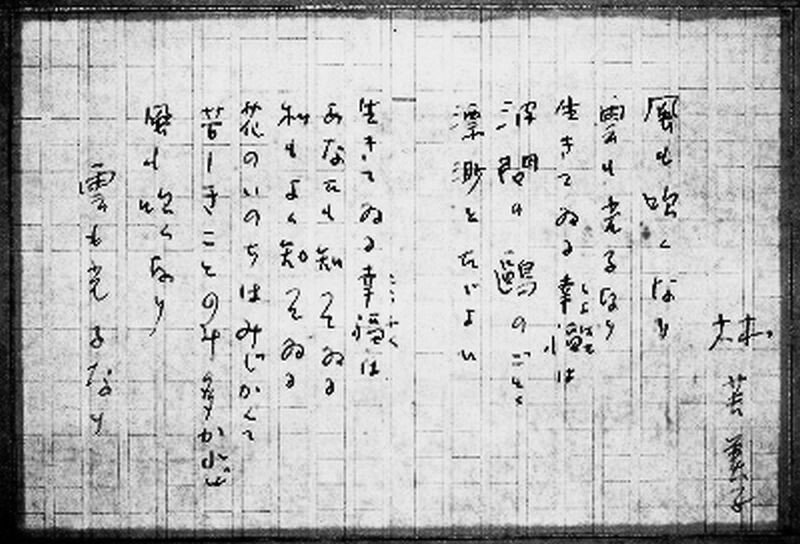 林 芙美子
風も吹くなり
雲も光るなり
生きてゐる幸福は
波間の鷗のごとく
漂渺とたゞよい
生きてゐる幸福は
あなたも知ってゐる
私もよく知ってゐる
花のいのちはみじかくて
苦しきことのみ多かれど
風も吹くなり
雲も光るなり